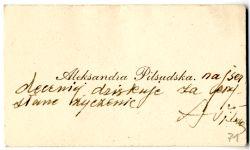 Aleksandra Piłsudska. najser
deczniej dziękuje za przy
słane życzenie
A Piłsu